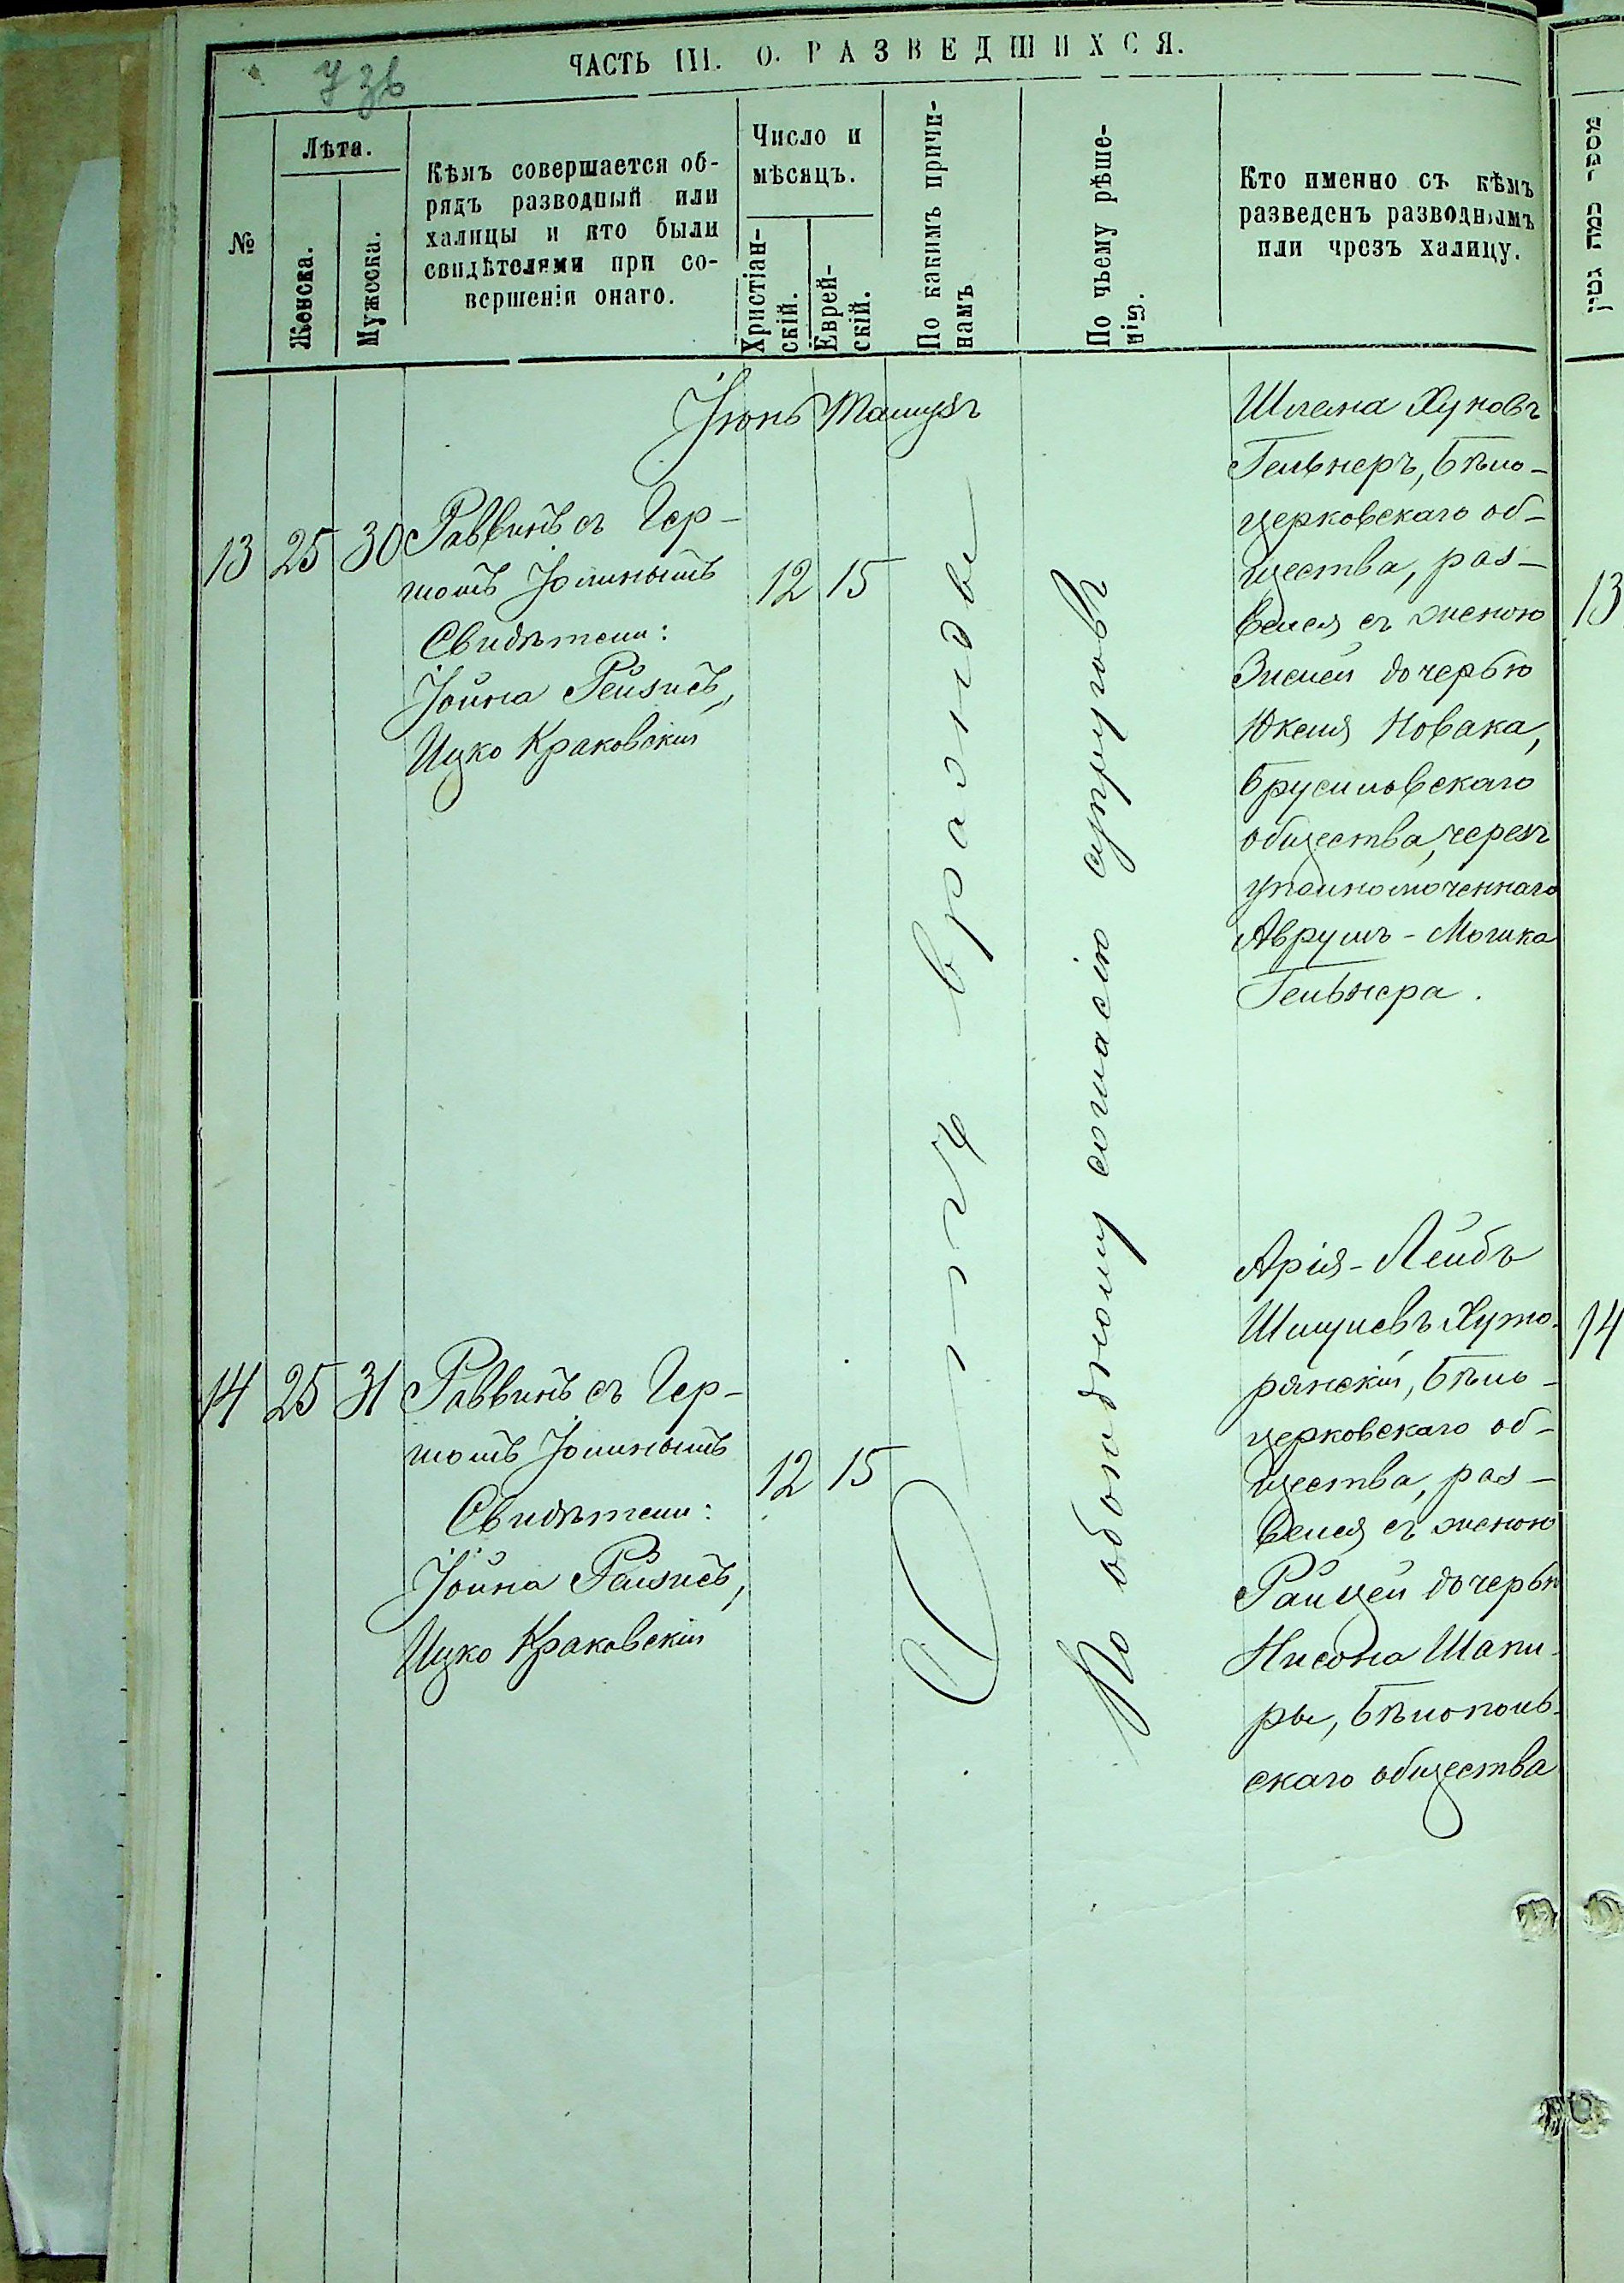 ЧАСТЬ III. О. РАЗВЕДШИХСЯ.
№
Лѣта.
Женска.
Мужеска.
Кѣмъ совершается об-
рядъ разводный или
халицы и кто были
свидѣтелями при со-
вершеніи онаго.
Число и
мѣсяцъ.
Христіан-
скій.
Еврей-
скій.
По какимъ причи-
намъ
По чьему рѣше-
нію.
Кто именно съ кѣмъ
разведенъ разводнымъ
или чрезъ халицу.
מספר כמה גטין
Іюнь Тамузъ
13 25 30
Раввинъ съ Гер-
шомъ Іолинымъ
Свидѣтели:
Іойна Рейзисъ,
Ицко Краковскій
12 15
Шлема Хуновъ
Гельнеръ, Бѣло-
церковскаго об-
щества, раз-
велся съ женою
Зислей дочерью
Юкеля Новака,
Брусиловскаго
общества, черезъ
уполномоченнаго
Аврумъ-Мошка
Гельнера.
13
Отъ вражды
По обоюдному согласію супруговъ
14 25 31
Раввинъ съ Гер-
шомъ Іолинымъ
Свидѣтели:
Іойна Рейзисъ,
Ицко Краковскій
12 15
Арія-Лейбъ
Шмулевъ Хуто-
рянскій, Бѣло-
церковскаго об-
щества, раз-
велся съ женою
Райцей дочерью
Нисона Шапи-
ры, Бѣлополь-
скаго общества
14